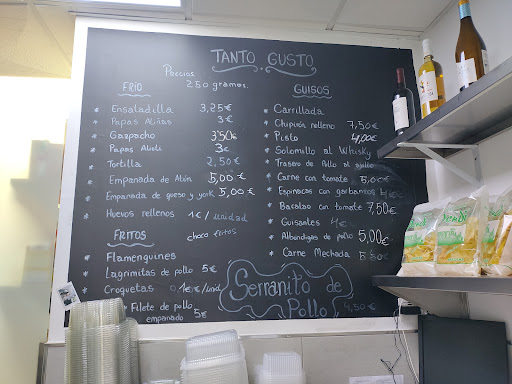 TANTO GUSTO
Precios 250 gramos.
FRIO
* Ensaladilla 3,25€
* Papas Aliñas 3€
* Gazpacho 3'50€
* Papas Alioli 3€
* Tortilla 2,50€
* Empanada de Atún 5,00€
* Empanada de queso y york 5,00€
* Huevos rellenos 1€/unidad
FRITOS
choco fritos
* Flamenquines
* Lagrimitas de pollo 5€
* Croquetas 1€/und
* Filete de pollo empanado 5€
GUISOS
* Carrillada
* Chipirón relleno 7,50€
* Pisto 4,00€
* Solomillo al Whisky
* Trasero de Pollo al
* Carne con tomate 5,00€
* Espinacas con garbanzos
* Bacalao con tomate 7,50€
* Guisantes 4€
* Albondigas de pollo 5,00€
* Carne Mechada
Serranito de Pollo 4,50€